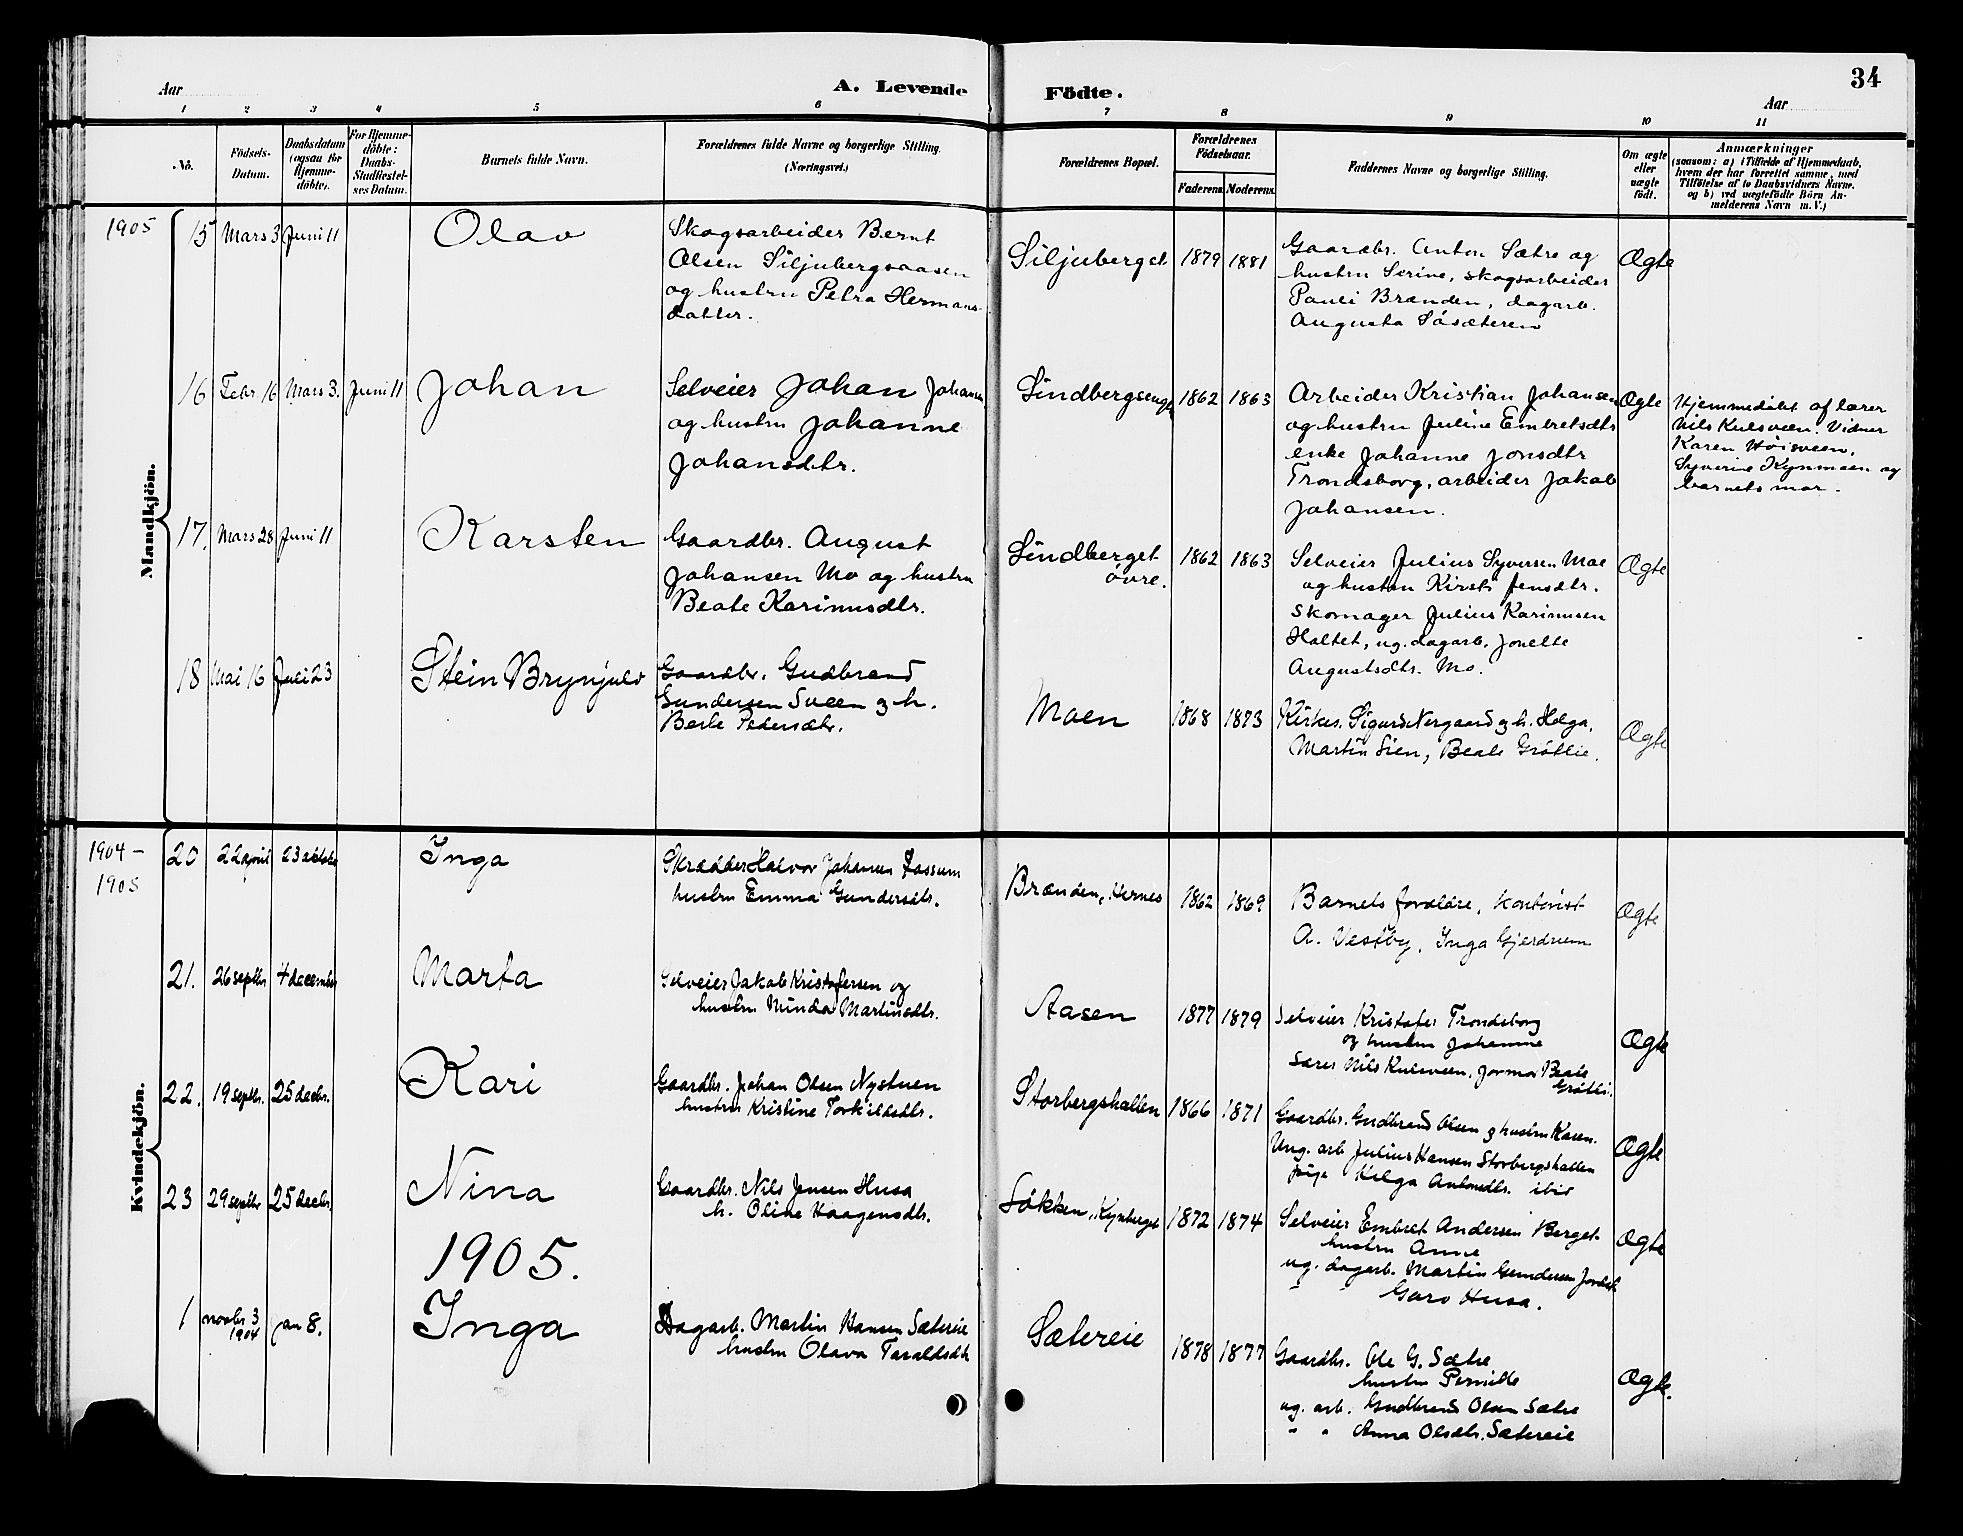 34
Aar
A. Levende Födte.
Aar
1 2 3 4 5 6 7 8 9 10 11
No.
Födsels-
Datum.
Daabsdatum
(ogsaa for
Hjemme-
döbte).
For Hjemme-
döbte:
Daabs-
Stadfæstel-
ses Datum.
Barnets fulde Navn.
Forældrenes fulde Navne og borgerlige Stilling.
(Næringsvei.)
Forældrenes Bopæl.
Forældrenes
Födselsaar.
Faderens.
Moderens.
Faddernes Navne og borgerlige Stilling.
Om ægte
eller
uægte
født.
Anmærkninger
(saasom: a) i Tilfælde af Hjemmedaab,
hvem der har forrettet samme, med
Tilføielse af to Daabsvidners Navne.
og b) ved uægtefödte Börn An-
melderens Navn m. V.)
Mandkjön.
1905
15 Mars 3 Juni 11
Olav
Skogsarbeider Bernt
Olsen Siljubergsaasen
og hustru Petra Hermans-
datter.
Siljuberget
1879 1881
Gaardbr. Anton Sætre og
hustru Serine, skogsarbeider
Pauli Brænden, dagarb.
Augusta Søsæteren
Ægte
16 Febr. 16 Mars 3. Juni 11
Johan
Selveier Johan Johansen
og hustru Johanne
Johansdtr.
Sindbergsenget
1862 1863
Arbeider Kristian Johansen
og hustru Juline Embretsdtr
enke Johanne Jonsdtr
Trondsborg, arbeider Jakob
Johansen.
Ægte
Hjemmedöbt af lærer
Nils Kulsveen. Vidner
Karen Høisveen,
Syverine Kynmoen og
barnets mor.
17. Mars 28 Juni 11
Karsten
Gaardbr. August
Johansen Mo og hustru
Beate Karinusdtr.
Sindberget
övre.
1862 1863
Selveier Julius Syversen Moe
og hustru Kirsti Jensdtr.
Skomager Julius Karinusen
Haltet, ug. dagarb. Jonette
Augustsdtr. Mo.
Ægte
18 Mai 16 Juli 23
Stein Brynjulv
Gaardbr. Gudbrand
Gundersen Sveen og h.
Berte Pedersdtr.
Moen
1868 1873
Kirkes. Sigurd Nergaard og h. Helga,
Martin Lien, Beate Grötlie.
Ægte
Kvindekjön.
1904 -
1905
20 22 april 23 oktober
Inga
Skrædder Halvor Johansen Fossum
hustru Emma Gundersdtr.
Brænden, Kernes
1862 1869
Barnets forældre, kontorist
A. Vestby, Inga Gjerdrum
Ægte
21. 26 septbr 4 december
Marta
Selveier Jakob Kristofersen og
hustru Minda Martinsdtr.
Aasen
1877 1879
Selveier Kristofer Trondsborg
og hustru Johanne
Lærer Nils Kulsveen, jormor Beate
Grötli.
Ægte
22. 19 septbr. 25 decbr.
Kari
Gaardbr. Johan Olsen Nystuen
hustru Kristine Torkildsdtr.
Storbergshallen
1866 1871
Gaardbr. Gudbrand Olsen og hustru Karen.
Ung. arb Julius Hansen Storbergshallen
pige Helga Antonsdtr. ibid
Ægte
23 29 septbr 25 decbr.
Nina
Gaardbr. Nils Jensen Husa
h. Oline Haagensdtr.
Lökken, Kynberget
1872 1874
Selveier Embret Andersen Berget
hustru Anne
ug. dagarb. Martin Gundersen
Garo Husa.
Ægte
1905.
1 novbr 3
1904 jan 8.
Inga
Dagarb. Martin Hansen Sætereie
hustru Olava Taraldsdtr
Sætereie
1878 1877
Gaardbr. Ole G. Sætre
hustru Pernille
ug. arb. Gudbrand Olsen Sætre
" " Anna Olsdtr. Sætereie
Ægte.